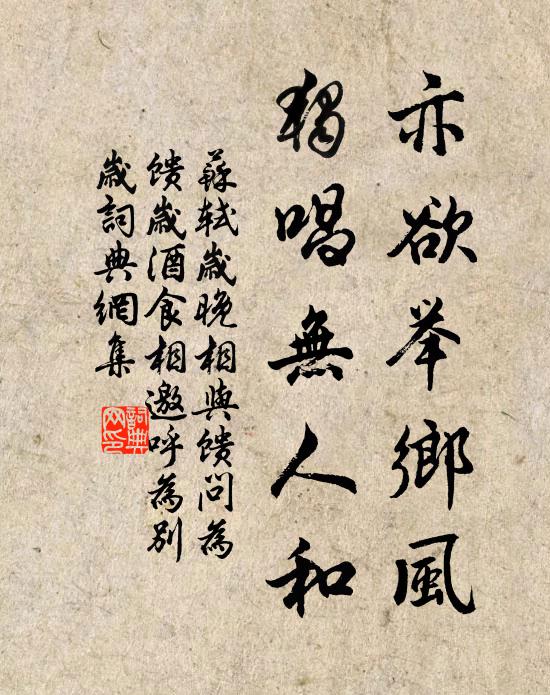 亦欲举鄉風
獨唱無人和
蘇軾歲晚相與饋問為
饋歲酒食相邀呼為別
歲詞典網集
詞典網印